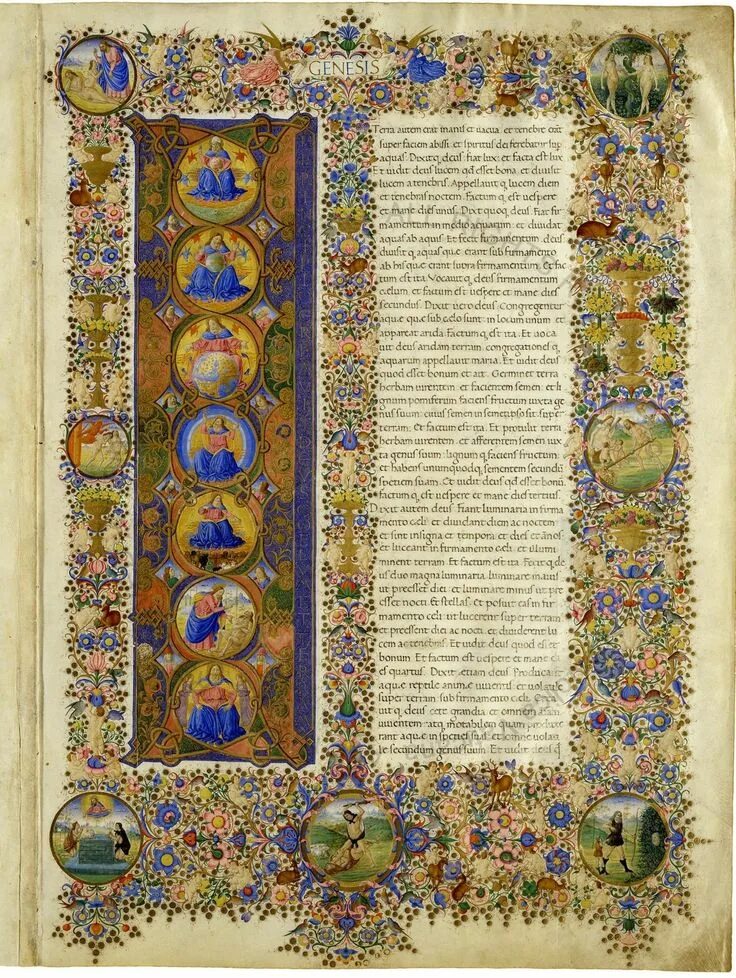 GENESIS
Terra autem erat inanis et uacua, et tenebre erāt
super faciem abissi: et spiritus dei ferebatur sup
aquas. Dixitq; deus. Fiat lux: et facta est lux
Et uidit deus lucem qđ esset bona: et diuisit
lucem a tenebris. Appellauitq; lucem diem
et tenebras noctem. Factumq; est uespere
et mane dies unus. Dixit quoq; deus. Fiat fir
mamentum in medio aquarum: et diuidat
aquas ab aquis. Et fecit firmamentum. deus
diuisitq; aquas que erant sub firmamento
ab his que erant supra firmamentum. et fac
tum est ita. Vocauitq; deus firmamentum
celum. et factum est uespere et mane dies
secundus. Dixit uero deus. Congregentur
aque que sub celo sunt in locum unum et
appareat arida. Factumq; est ita. Et uoca
uit deus aridam terram. congregationesq;
aquarum appellauit maria. Et uidit deus
quod esset bonum et ait. Germinet terra
herbam uirentem et facientem semen: et li
gnum pomiferum faciens fructum iuxta ge
nus suum: cuius semen in semetipso sit super
terram: Et factum est ita. Et protulit terra
herbam uirentem. et afferentem semen iux
ta genus suum: lignumq; faciens fructum:
et habens unumquodq; sementem secundū
speciem suam. Et uidit deus qđ esset bonū
factumq; est uespere et mane dies tertius.
Dixit autem deus. Fiant luminaria in firma
mento celi: et diuidant diem ac noctem
et sint in signa et tempora: et dies et ānos
ut luceant in firmamento celi. et illumi
nent terram. Et factum est ita. Fecitq; de
us duo magna luminaria. luminare maius
ut preesset diei: et luminare minus ut pre
esset nocti. Et stellas. et posuit eas in fir
mamento celi: ut lucerent super terram
et preessent diei ac nocti: et diuiderent lu
cem ac tenebras. Et uidit deus quod esset
bonum. Et factum est uespere et mane di
es quartus. Dixit etiam deus. Producant
aque reptile anime uiuentis et uolatile
super terram sub firmamento celi.
uitq; deus cete grandia: et omnem
uiuentem atq; motabilem quam produxe
rant aque in species suas: et omne uola
le secundum genus suum. Et uidit deus qđ